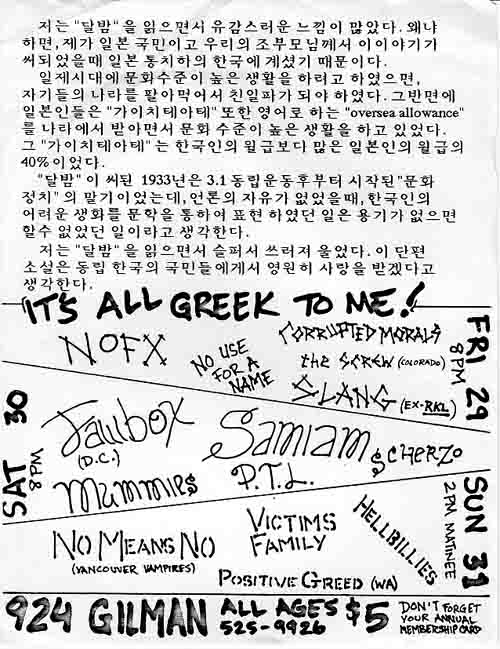 저는 "달밤" 을 읽으면서 유감스러운 느낌이 많았다. 왜냐
하면, 제가 일본 국민이고 우리의 조부모님께서 이이야기가
써되었을때 일본 통치하의 한국에 계셨기 때문이다.
일제시대에 문화수준이 높은 생활을 하려고 하였으면,
자기들의 나라를 팔아먹어서 친일파가 되야 하였다. 그반면에
일본인들은 "가이치테아테" 또한 영어로 하는 "oversea allowance"
를 나라에서 받아면서 문화 수준이 높은 생활을 하고 있었다.
그 "가이치테아테" 는 한국인의 월급보다 많은 일본인의 월급의
40% 이었다.
"달밤" 이 써된 1933년은 3.1 동립운동후부터 시작된 "문화
정치" 의 말기이었는데, 언론의 자유가 없었을때, 한국인의
어려운 생화를 문학을 통하여 표현 하였던 일은 용기가 없으면
할수 없었던 일이라고 생각한다.
저는 "달밤" 을 읽으면서 슬퍼서 쓰러져 울었다. 이 단편
소설은 동립 한국의 국민들에게서 영원히 사랑을 받겠다고
생각한다.
IT'S ALL GREEK TO ME!
FRI 29
8PM
NOFX
NO USE FOR A NAME
CORRUPTED MORALS
the SCREW (COLORADO)
SLANG (EX-RKL)
SAT 30
8PM
Jawbox
(D.C.)
Samiam
Scherzo
Mummies
P.T.L.
SUN 31
2PM MATINEE
NO MEANS NO
(VANCOUVER VAMPIRES)
VICTIMS
FAMILY
HELLBILLIES
POSITIVE GREED (WA)
924 GILMAN
ALL AGES
525-9926
$5
DON'T FORGET
YOUR ANNUAL
MEMBERSHIP CARD